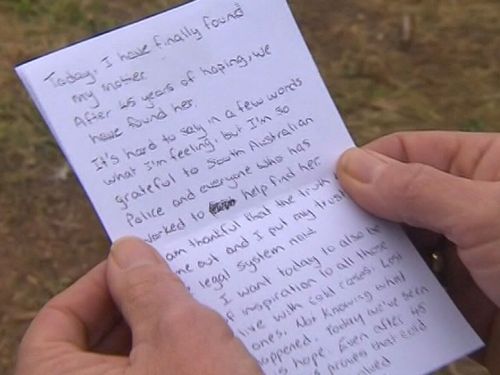 Today, I have finally found
my mother
After 45 years of hoping, we
have found her.
It's hard to say in a few words
what I'm feeling, but I'm so
grateful to South Australian
Police and everyone who has
worked to help find her
am thankful that the truth
me out and I put my trust
legal system now.
I want today to also be
of inspiration to all those
live with cold cases. Lost
ones. Not knowing what
appened. Today we've been
s hope. Even after 45
proves that cold